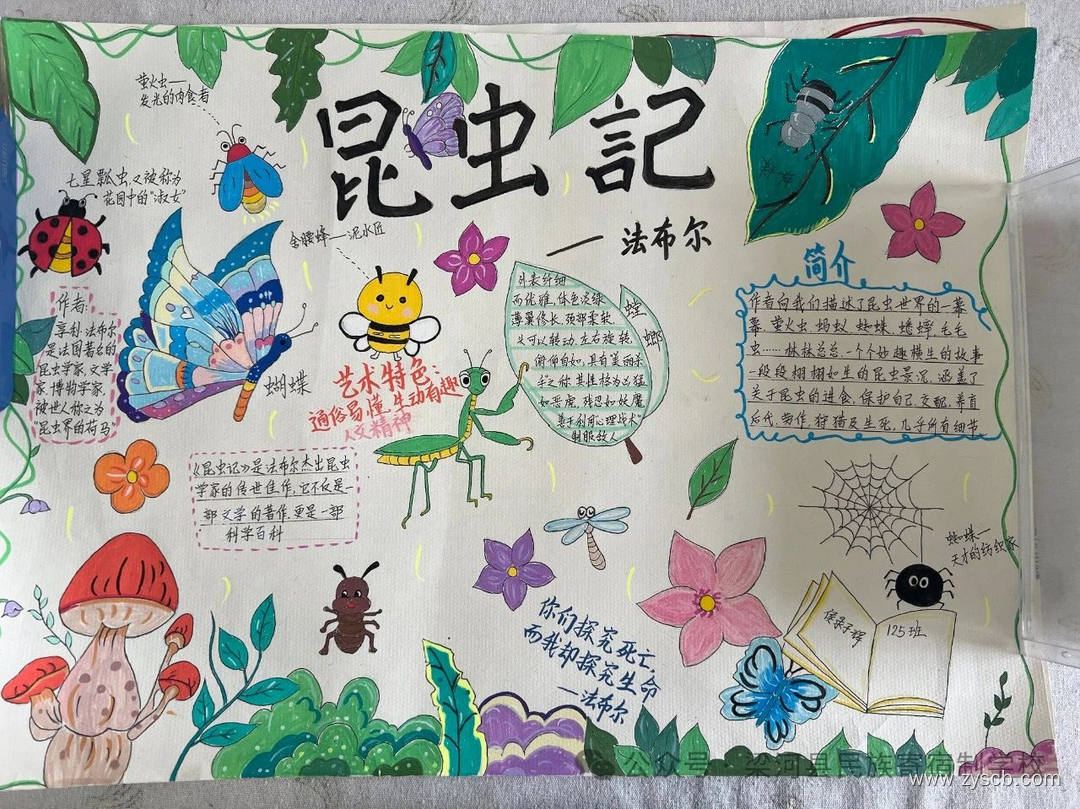 昆虫記
——法布尔
萤火虫——
发光的肉食者
七星瓢虫,又被称为
花园中的"淑女"
金腰蜂——泥水匠
作者:
享利·法布尔
是法国著名的
昆虫学家,文学
家,博物学家,
被世人称之为
"昆虫界的荷马"
蝴蝶
艺术特色:
通俗易懂,生动有趣
人文精神
外表纤细
而优雅,体色淡绿
薄翼修长,颈部柔软,
头可以转动,左右旋转,
俯仰自如,具有美丽杀
手之称,其性格为凶猛
如恶虎,残忍如妖魔
善于利用"心理战术"
制服敌人
螳螂
简介
作者向我们描述了昆虫世界的一幕
幕,萤火虫 蚂蚁 蜘蛛 蟋蟀 毛毛
虫……林林总总,一个个妙趣横生的故事
一段段栩栩如生的昆虫景况,涵盖了
关于昆虫的进食、保护自己、交配、养育
后代、劳作、狩猎及生死,几乎所有细节
《昆虫记》是法布尔杰出昆虫
学家的传世佳作,它不仅是一
部文学的著作,更是一部
科学百科
蜘蛛——
天才的纺织家
你们探究死亡,
而我却探究生命
——法布尔
125班
公众号·梁河县民族寄宿制学校
www.zyscb.com